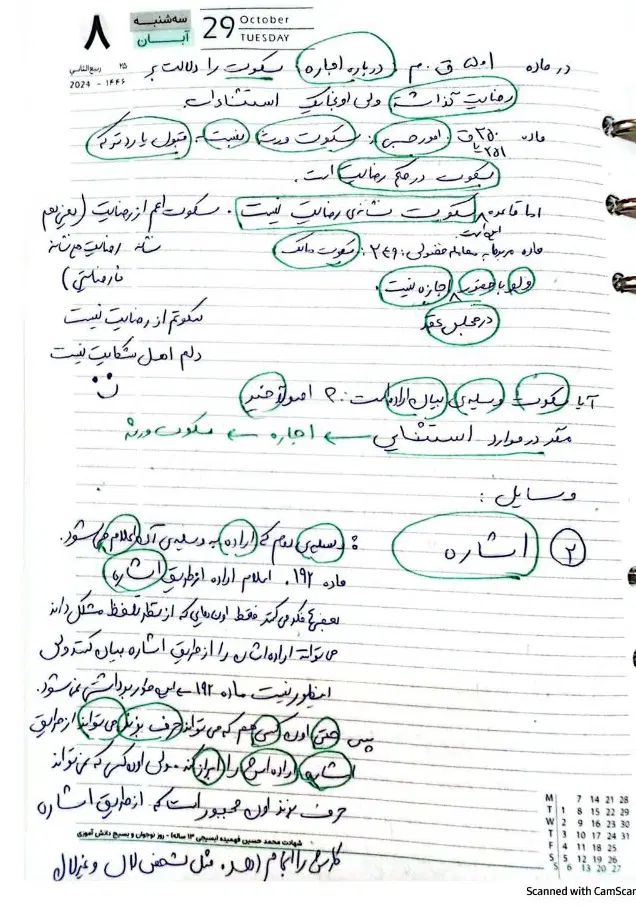 ۸
سه‌شنبه
آبـــان
29 October
TUESDAY
۲۵ ربیع‌الثانی
2024 - ۱۴۴۶
در ماده ۵۰۱ ق.م درباره اجاره، سکوت را دلالت بر
رضایت گذاشته ولی اونجا یک استثناءات.
ماده ۲۵۰ تا ۲۵۱ ق امور حسبی: سکوت ورثه نسبت به قبول یا رد ترکه
سکوت در حکم رضایت است.
اما قاعده این است سکوت نشانه‌ی رضایت نیست. سکوت اعم از رضایت (یعنی هم
نشانه رضایت هم نشانه
نارضایتی)
ماده مربوط به معامله فضولی: ۲۴۹: سکوت مالک
ولو با حضور در مجلس عقد اجازه نیست.
سکوتم از رضایت نیست
دلم اهل شکایت نیست
آیا سکوت وسیله‌ی بیان اراده است؟ اصولاً خیر
مگر در موارد استثنایی ← اجاره ← سکوت ورثه
وسایل:
۲ اشاره
: وسیله‌ی دوم که اراده به وسیله‌ی آن اعلام می‌شود.
ماده ۱۹۲. اعلام اراده از طریق اشاره
بعضی‌ها فکر می‌کنند فقط اون‌هایی که از نظر تلفظ مشکل دارند
می‌توانند اراده‌اشان را از طریق اشاره بیان کنند ولی
اینطور نیست ماده ۱۹۲ این طور برداشتی نمی‌شود.
پس حتی اون کسی هم که می‌تواند حرف بزند می‌تواند از طریق
اشاره اراده‌اش را ابراز کند. ولی اون کسی که نمی‌تواند
حرف بزند اون مجبور است که از طریق اشاره
شهادت محمد حسین فهمیده (بسیجی ۱۳ ساله) - روز نوجوان و بسیج دانش آموزی
کارش را انجام دهد. مثل شخص لال و غیر لال
M 7 14 21 28
T 1 8 15 22 29
W 2 9 16 23 30
T 3 10 17 24 31
F 4 11 18 25
S 5 12 19 26
S 6 13 20 27
Scanned with CamScan